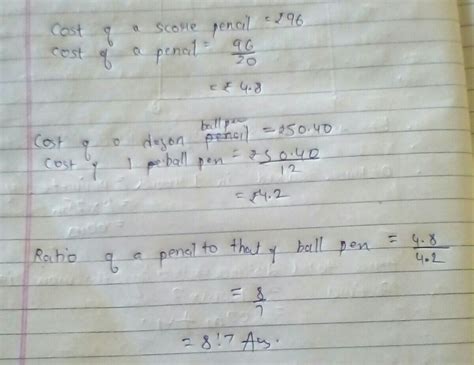 Cost of a score pencil = ₹96
Cost of a pencil = 96/20
= ₹4.8
Cost of a dozen ball pen = ₹50.40
Cost of 1 ball pen = ₹50.40/12
= ₹4.2
Ratio of a pencil to that of ball pen = 4.8/4.2
= 8/7
= 8:7 Ans.